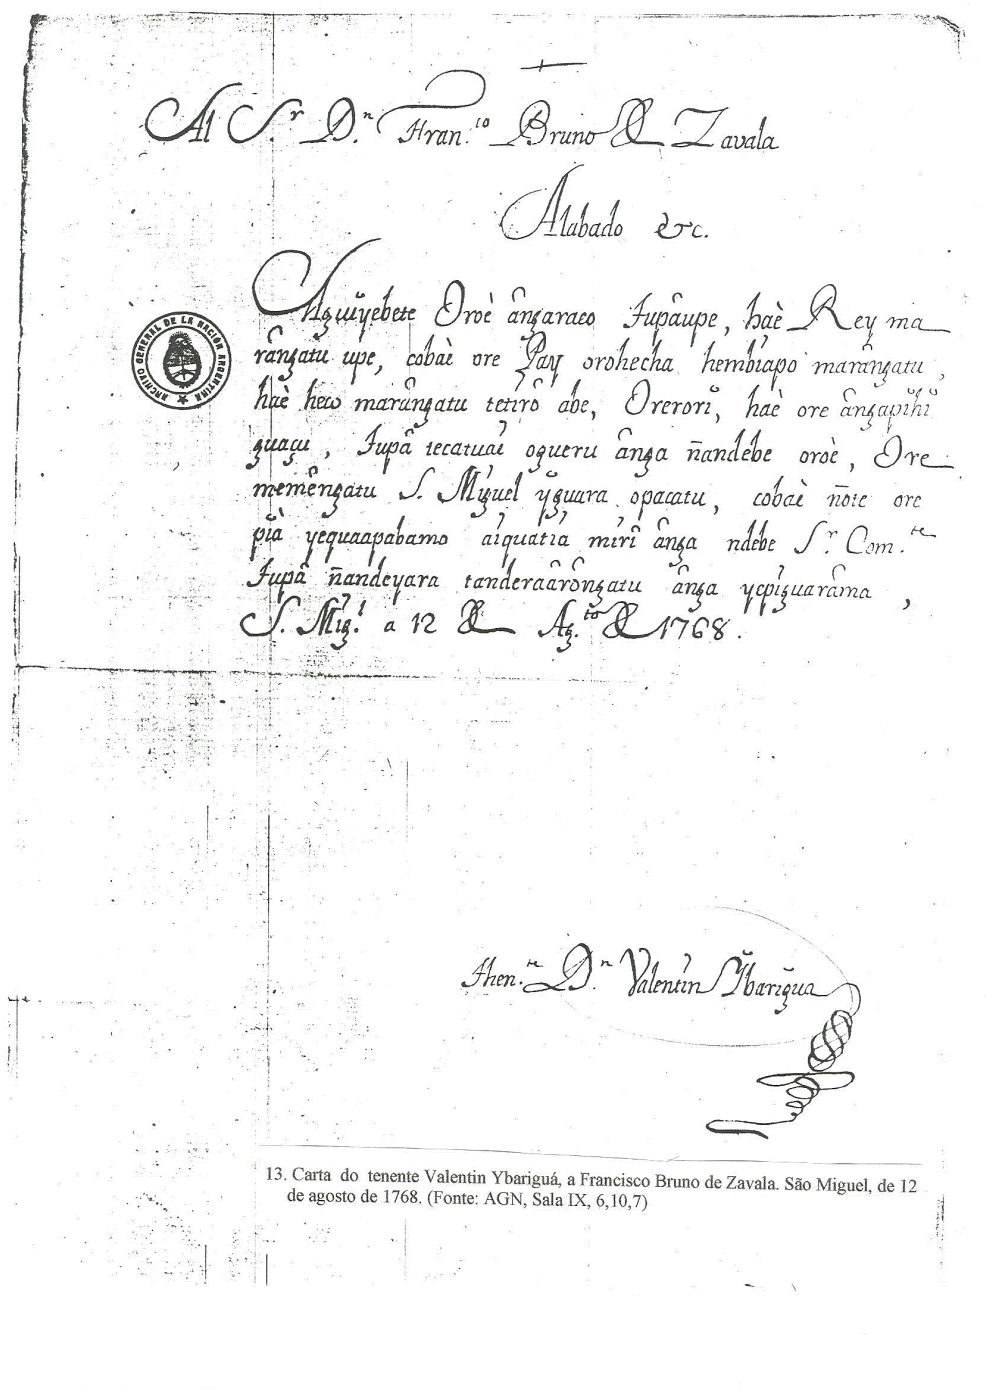 Al S.r D.n Fran.co Bruno de Zavala
Alabado &c.
Aguĭyebete Oroè ânga raco Tupâ upe, haè Rey ma
rângatu upe, cobaè ore Pay orohecha hembiapo marângatu,
haè heco marângatu tetirô abe, Orororĭ, haè ore ângapĭhĭ
guaçu, Tupâ tecatuai ogueru ânga ñandebe oroè, Ore
memêngatu S. Miguel ỹguara opacatu, cobaè ñote ore
pĭà yequaapabamo aiquatia mirî ânga ndebe S.r Com.te
Tupâ ñandeyara tanderaârôngatu ânga yepiguarâma,
S. Mig.l a 12 de Ag.to de 1768.
ARCHIVO GENERAL DE LA NACIÓN ARGENTINA
Then.te D.n Valentin Ỹbarigua
13. Carta do tenente Valentin Ybariguá, a Francisco Bruno de Zavala. São Miguel, de 12
de agosto de 1768. (Fonte: AGN, Sala IX, 6,10,7)